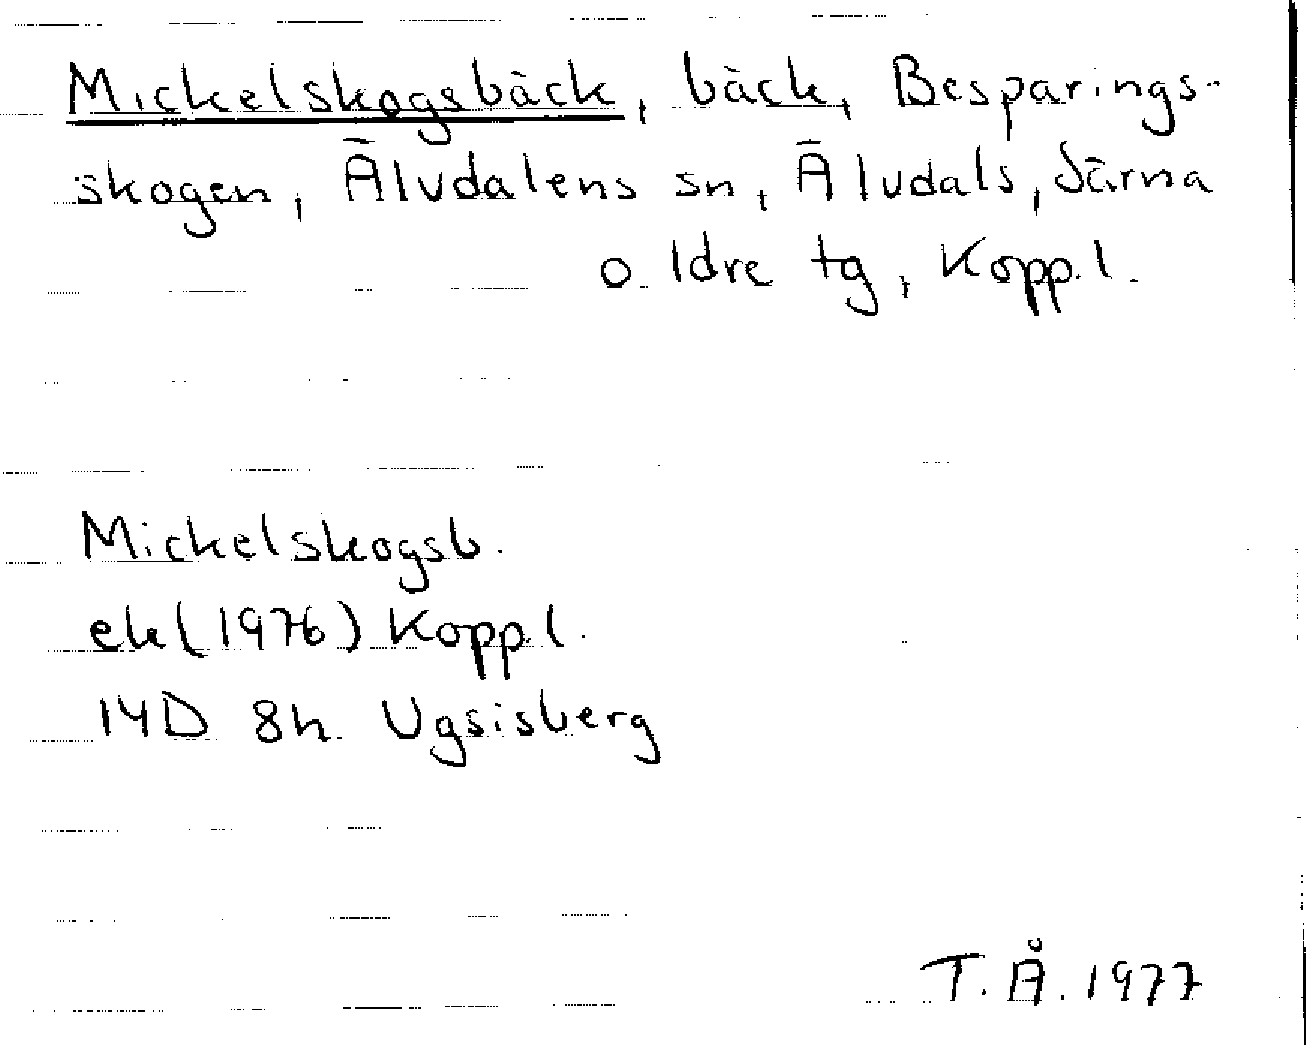 Mickelskogsbäck, bäck, Besparings-
skogen, Älvdalens sn, Älvdals, Särna
o. Idre tg, Kopp.l.
Mickelskogsb.
ek (1976) Kopp.l.
14D 8h Ugsisberg
T.Å. 1977